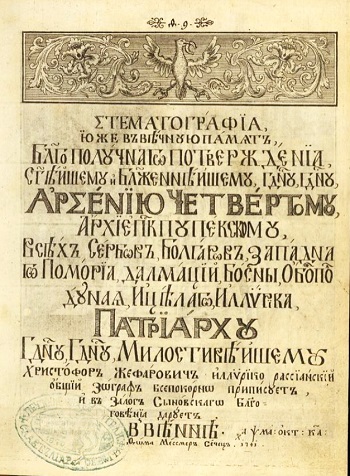 СТЕМАТОГРАФІА,
ЮЖЕ ВЪ ВѢЧНУЮ ПАМѦТЬ,
БЛГѠПОЛУЧНАГѠ ПОТВЕРЖДЕНІА,
СТ҃ѢЙШЕМУ И БЛЖЕННѢЙШЕМУ, ГДНУ, ГДНУ,
АРСЕНІЮ ЧЕТВЕРТОМУ,
АРХІЕПКПУ ПЕКСКОМУ,
ВСѢХЪ СЕРБѠВЪ, БОЛГАРѠВЪ, ЗАПАДНА
ГѠ ПОМОРІА, ДАЛМАЦІЙ, БОСНЫ, ОБОПО
ДУНАѦ, И ЦѢЛАГѠ ИЛЛѴРІКА,
ПАТРІАРХУ
ГДНУ, ГДНУ, МИЛОСТИВѢЙШЕМУ
ХРИСТОФОРЪ ЖЕФАРОВИЧЪ ИЛЛѴРІКО РАССІАНСКІЙ
ОБЩІЙ ЗѠГРАФЪ ВСЕПОКОРНѠ ПРИПИСУЕТЪ,
И ВЪ ЗАЛОГЪ СЫНОВСКАГѠ БЛГО
ГОВѢНІА ДАРУЕТЪ
ВЪ ВІЕННѢ
Ѳома Мессмеръ